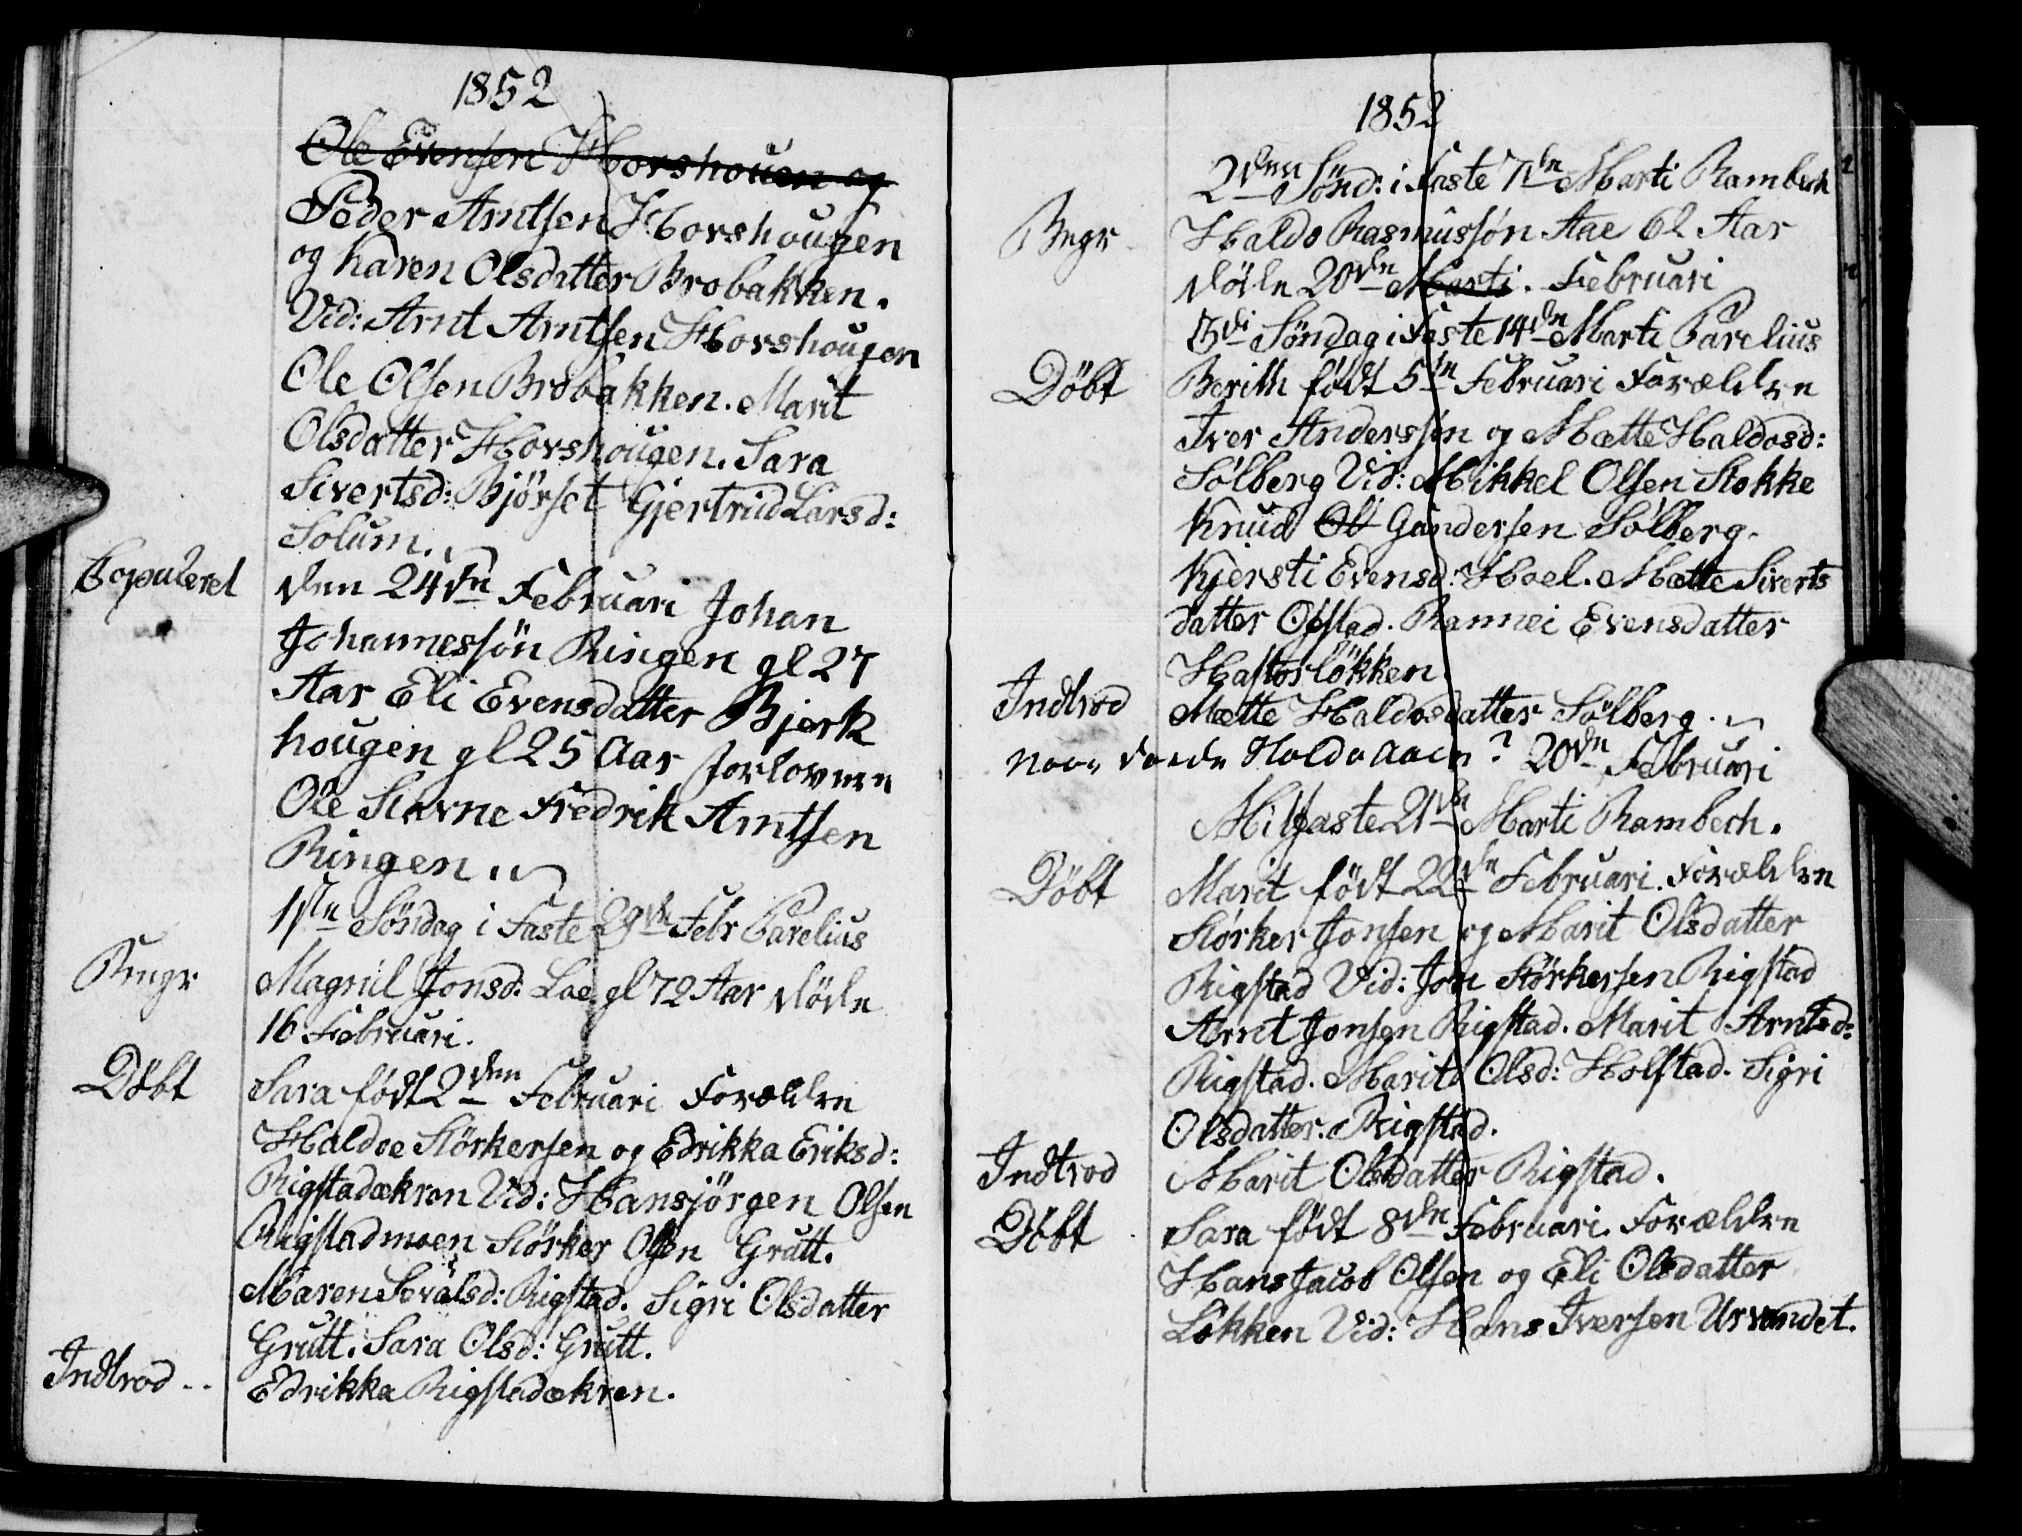 1852
Ole Evensen Horshouen og
Peder Arntsen Horshougen
og Karen Olsdatter Brobakken.
Vid: Arnt Arntsen Horshougen
Ole Olsen Brobakken. Marit
Olsdatter Horshougen. Sara
Sivertsd: Bjørset Gjertrud Larsd:
Solum.
Copuleret den 24de Februari Johan
Johannessøn Ringen gl 27
Aar Eli Evensdatter Bjerk
hougen gl 25 Aar forlovere
Ole Stavne Fredrik Arntsen
Ringen
1ste Søndag i Faste 29de Febr Parelius
Begr Magnil Jonsd: Loe gl 72 Aar døde
16 Februari.
Døbt Sara født 2den Februari Forældre
Haldoe Størkersen og Edrikka Eriksd:
Rigstadækren Vid: Hansjørgen Olsen
Rigstadmoen Størker Olsen Grutt.
Maren Sivalsd: Rigstad. Sigri Olsdatter
Grutt. Sara Olsd: Grutt.
Indtrod .. Edrikka Rigstadækren.
1852
2den Sønd: i Faste 7de Marti Rambech
Begr Haldo Rasmussøn Aae 62 Aar
døde 20de Marti. Februari
3di Søndag i Faste 14de Marti Parelius
Døbt Berith født 5te Februari Forældre
Iver Anderssøn og Mette Haldosd:
Sølberg Vid: Mikkel Olsen Stokke
Knud Ol Gundersen Sølberg.
Kjersti Evensd: Hoel. Mette Siverts
datter Opstad. Rannei Evensdatter
Hastorløkken.
Indtrod Mette Haldosdatter Sølberg.
naar døede Haldo Aaen? 20de Februari
Mitfaste 21de Marti Rambech.
Døbt Marit født 22de Februari. Forældre
Størker Jonsen og Marit Olsdatter
Rigstad Vid: Jon Størkersen Rigstad
Arnt Jonsen Rigstad. Marit Arntsd:
Rigstad. Marit Olsd: Holstad. Sigri
Olsdatter. Rigstad.
Indtrod Marit Olsdatter Rigstad.
Døbt Sara født 8de Februari. Forældre
Hans Jacob Olsen og Eli Olsdatter
Løkken Vid: Hans Iversen Urvandet.